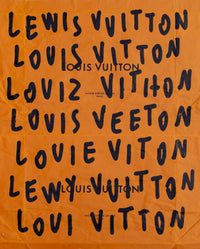 LEWIS VUITTON
LOUIS VUTTON
LOUIS VUITTON
LOUIZ VITIHON
LOUIS VEETON
LOUIE VITON
LEWY VUITTON
LOUIS VUITTON
LOUI VITTON